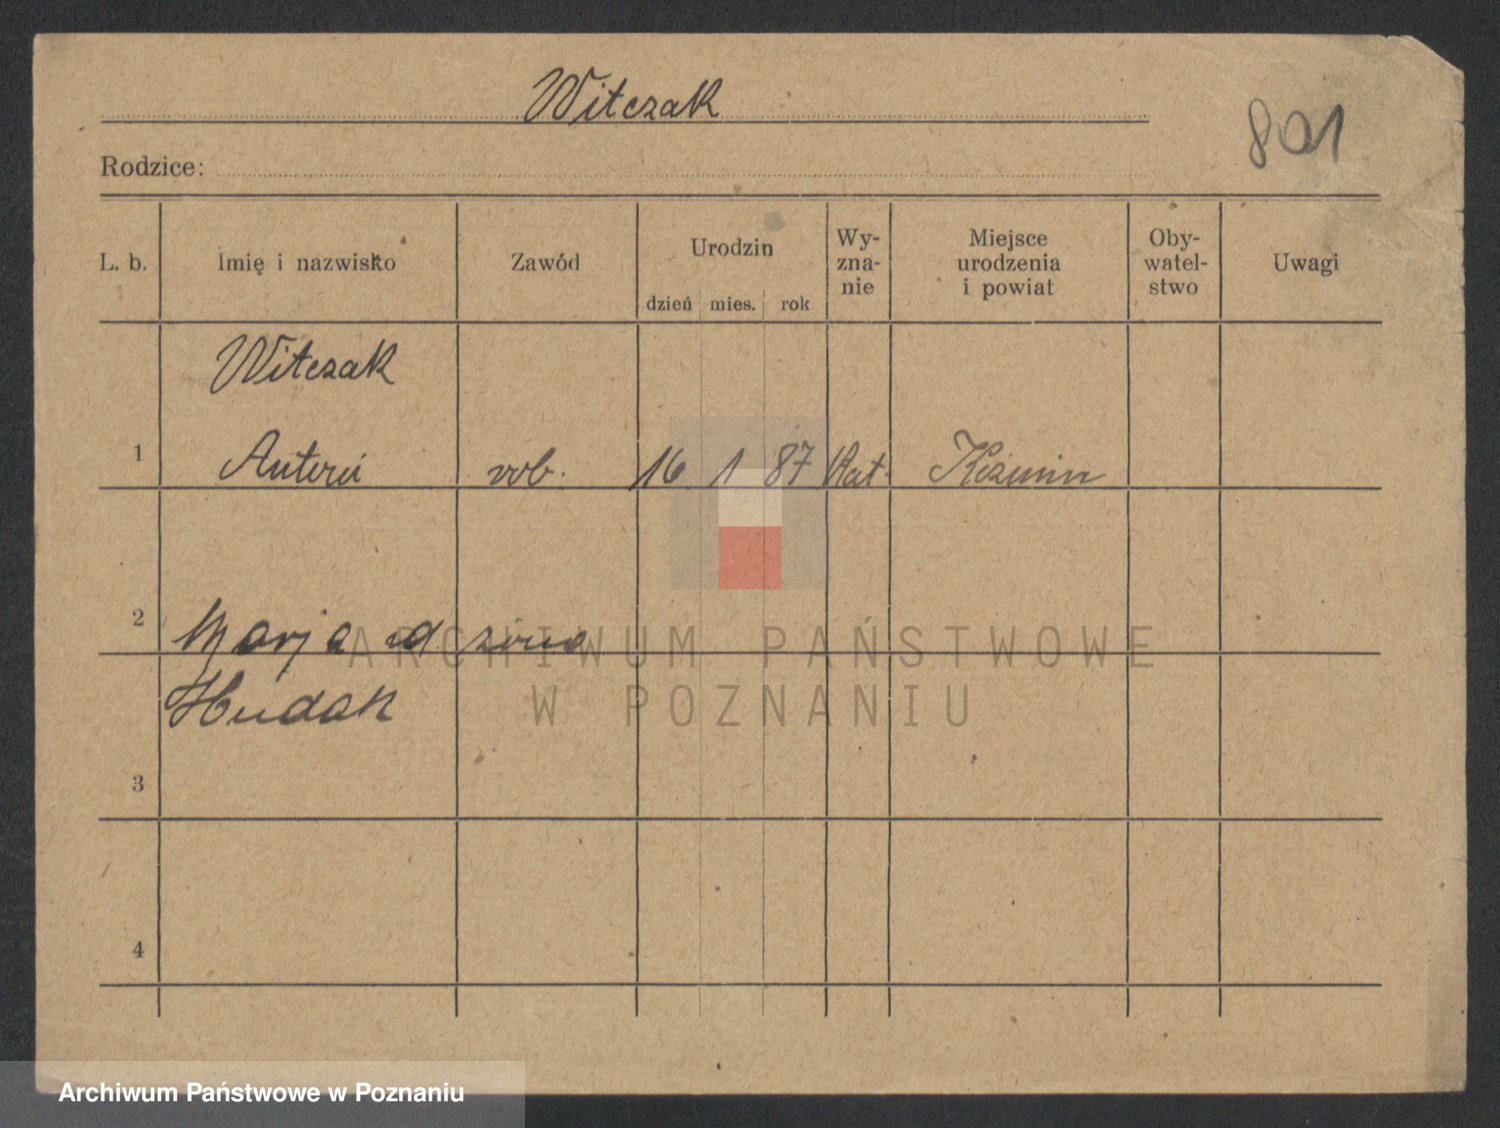 Witczak
801
Rodzice:
L. b. Imię i nazwisko Zawód Urodzin Wy-zna-nie Miejsce urodzenia i powiat Oby-watel-stwo Uwagi
dzień mies. rok
Witczak
1 Antoni rob. 16 1 87 Kat.
2 Marja żona
Hudak
3
4
ARCHIWUM PAŃSTWOWE
W POZNANIU
Archiwum Państwowe w Poznaniu